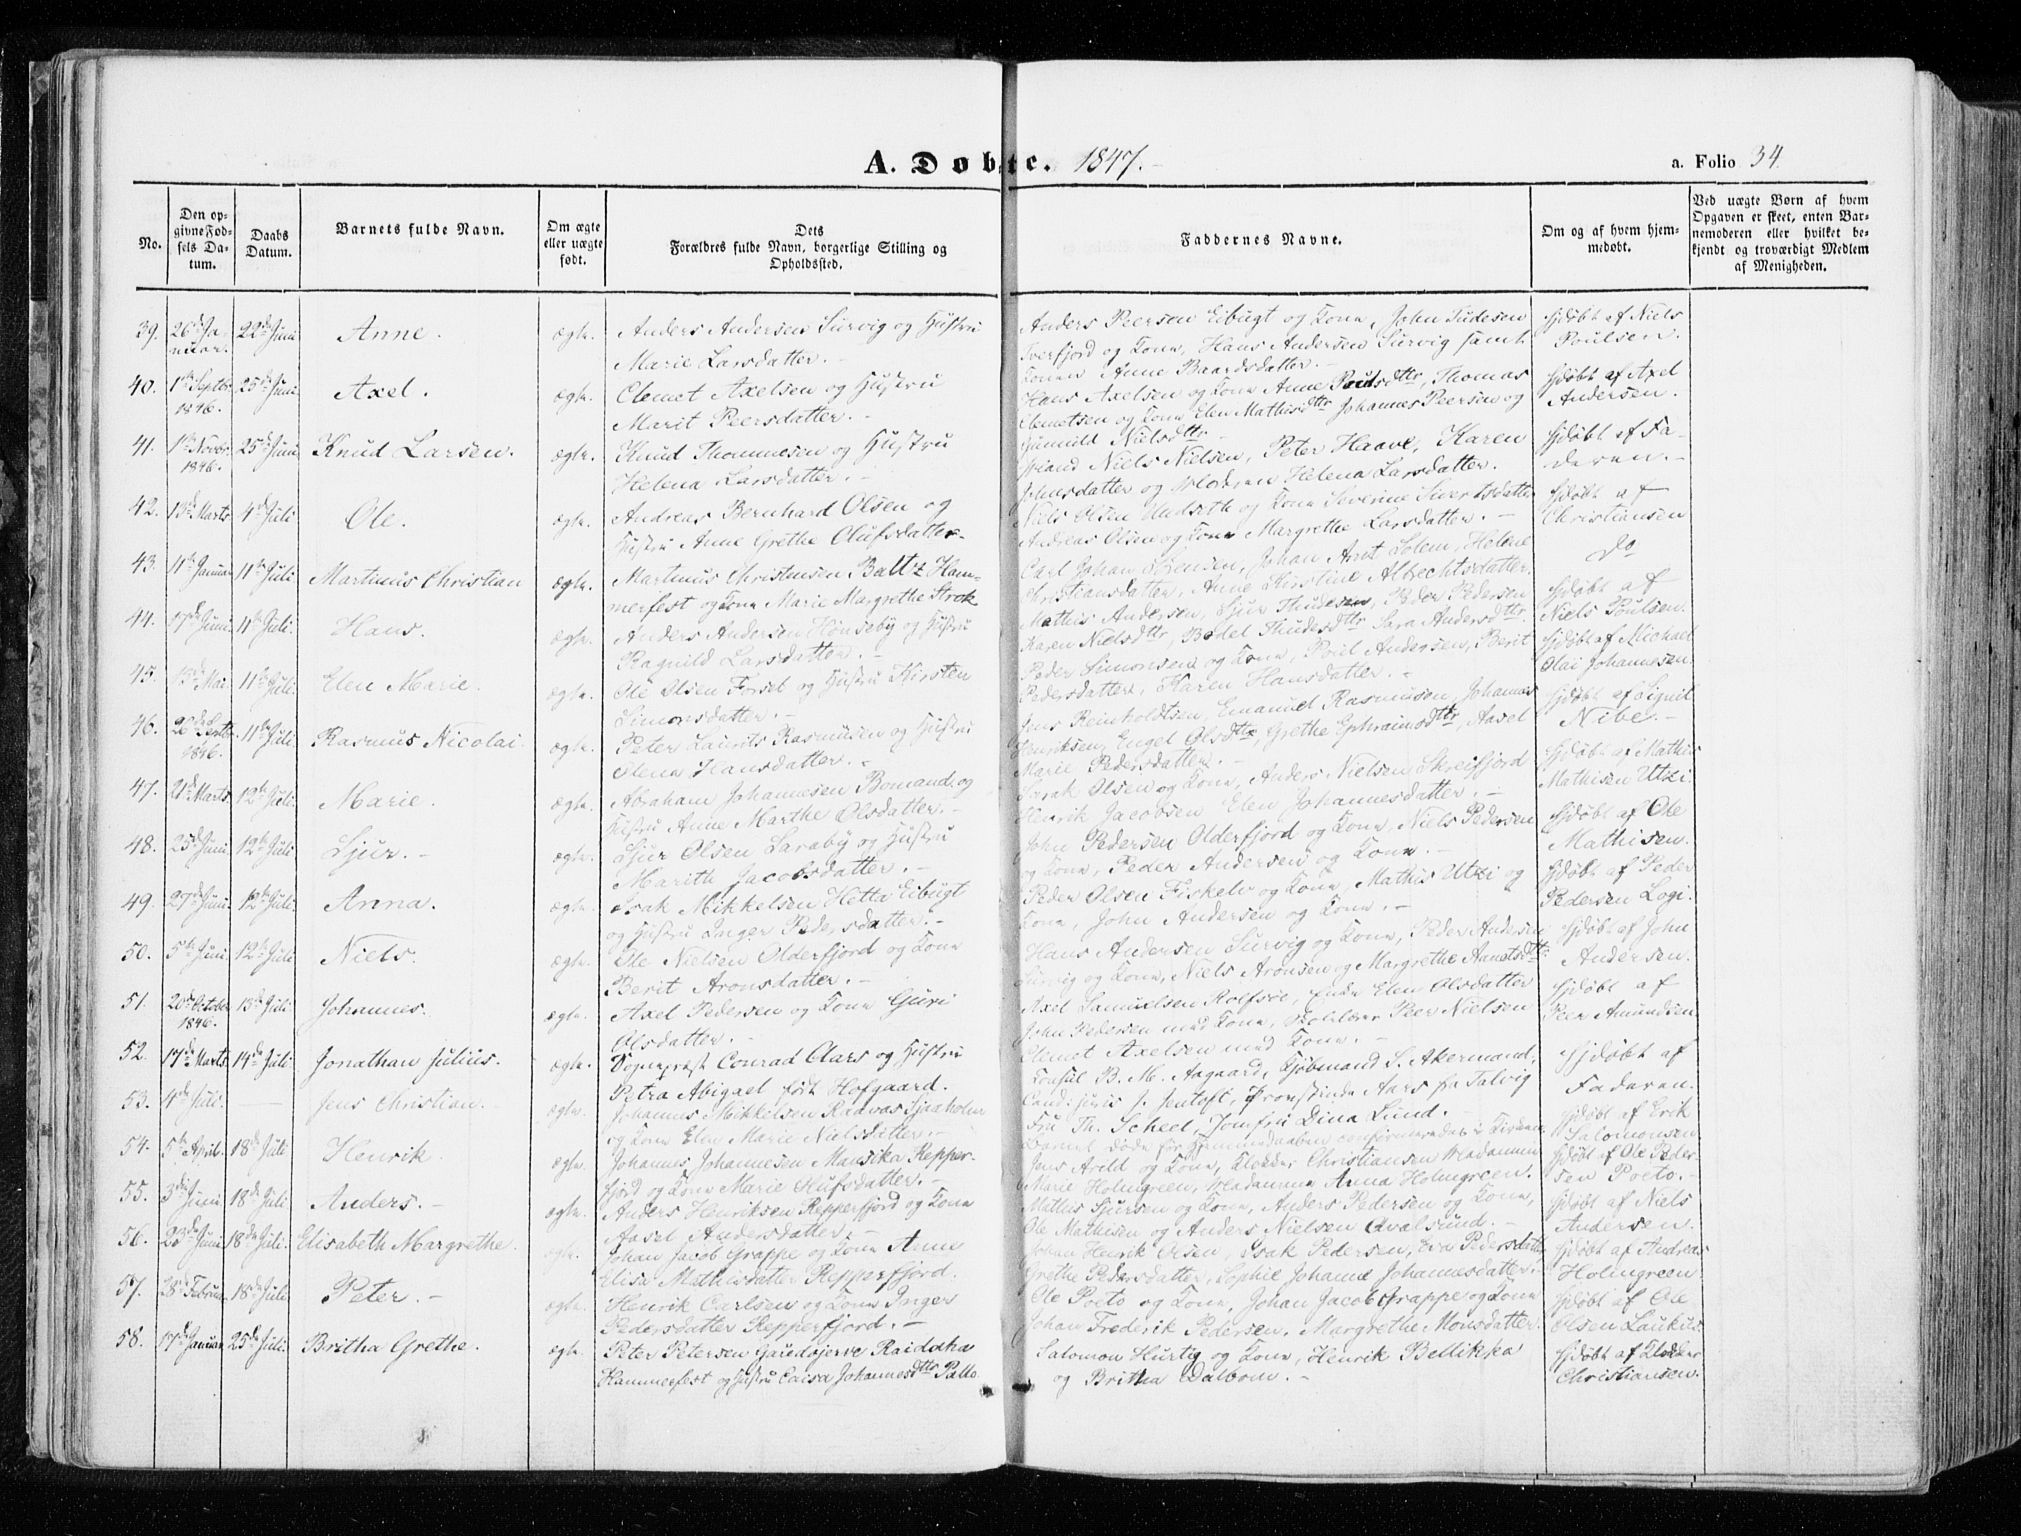 A. Døbte. 1847.-
a. Folio 34.
No.
Den opgivne Fødsels Datum.
Daabs Datum.
Barnets fulde Navn.
Om ægte eller uægte født.
Dets Forældres fulde Navn, borgerlige Stilling og Opholdssted.
Faddernes Navne.
Om og af hvem hjemmedøbt.
Ved uægte Børn af hvem Opgaven er skeet, enten Barnemoderen eller hvilket bekjendt og troværdigt Medlem af Menigheden.
39. 26de Januar. 22de Juni Anne. ægte. Anders Andersen Survig og Hustru
Marie Larsdatter.-
Anders Peersen Eibugt og Kone, John Tudesen
Tverfjord og Kone, Hans Andersen Survig samt
Konen Anne Baardsdatter.-
Hjdøbt af Niels
Poulsen.
40. 1ste Septbr 1846. 25de Juni Axel. ægte. Clemet Axelsen og Hustru
Marit Peersdatter.-
Hans Axelsen og Kone Anne Poulsdttr, Thomas
Clemetsen og Kone Elen Mathisdttr Johannes Peersen og
Gunnild Nielsdttr
Hjdøbt af Axel
Andersen.
41. 1ste Novbr 1846. 25de Juni Knud Larsen. ægte. Knud Thommesen og Hustru
Helena Larsdatter.-
Niels Nielsen, Peter Haave, Karen
Johnsdatter og Moderen Helena Larsdatter.
Hjdøbt af Faderen.-
42. 13de Marts 4de Juli Ole. ægte. Andreas Bernhard Olsen og
Hustru Anne Grethe Olufsdatter-
Niels Olsen Undseth og Kone Severine Sivertsdatter
Andreas Olsen og Kone Margrethe Larsdatter.-
Hjdøbt af
Christiansen
43. 11te Januar 11te Juli Martinus Christian ægte. Martinus Christensen Baltz Hammerfest og Kone Marie Margrethe Strek
Carl Johan Sørensen, Johan Arnt Solem, Helene
Christiansdatter, Anne Kirstine Albrechtsdatter.
Do
44. 17de Juni 11te Juli. Hans. ægte. Anders Andersen Hønseby og Hustru
Ragnild Larsdatter.-
Mathis Andersen, Sjur Thudesen, Peder Pedersen
Karen Nielsdttr, Bodel Thudesdttr Sara Andersdttr.
Hjdøbt af
Niels Poulsen.
45. 13de Mai. 11te Juli. Elen Marie. ægte. Ole Olsen Forset og Hustru Kirsten
Simonsdatter.-
Peder Simonsen og Kone, Poul Andersen, Berit
Pedersdatter, Karen Hansdatter.-
Hjdøbt af Michael
Olai Johannesen.
46. 20de Septbr 1846. 11te Juli. Rasmus Nicolai. ægte. Peter Laurits Rasmusen og Hustru
Olena Hansdatter.-
Jens Reinholdtsen, Emanuel Rasmusen, Johannes
Henriksen, Engel Olsdttr, Grethe Ephraimsdttr, Aasel
Marie Pedersdatter.-
Hjdøbt af Signil
Nibe.-
47. 21de Marts 12te Juli. Marie. ægte. Abraham Johannesen Bomand og
Hustru Anne Marthe Olsdatter.
Israk Olsen og Kone, Anders Nielsen Skreifjord
Henrik Jacobsen Elen Johannesdatter.-
Hjdøbt af Mathis
Mathisen Utzi.
48. 25de Juni. 12te Juli. Sjur.- ægte. Sjur Olsen Saraby og Hustru
Marith Jacobsdatter.-
John Pedersen Olderfjord og Kone, Niels Pedersen
og Kone, Peder Andersen og Kone.-
Hjdøbt af Ole
Mathisen.
49. 27de Juni. 12te Juli. Anna. ægte. Isak Mikkelsen Hetta Eibugt
og Hustru Inger Pedersdatter.-
Peder Olsen Fiskelv og Kone, Mathis Utzi og
Kone, John Andersen og Kone.-
Hjdøbt af Peder
Pedersen Logi.
50. 5te Juni. 12te Juli. Niels. ægte. Ole Nielsen Olderfjord og Kone
Berit Aronsdatter.-
Hans Andersen Survig og Kone, Peder Andersen
Survig og Kone, Niels Aronsen og Margrethe
Hjdøbt af John
Andersen.
51. 20de October 1846. 13de Juli. Johannes. ægte. Axel Pedersen og Kone Guri
Olsdatter.-
Axel Samuelsen Rolfsøe, Enke Elen Olsdatter
John Pedersen med Kone, Peer Nielsen
Clemet Axelsen med Kone.-
Hjdøbt af
Peer Amundsen.
52. 17de Marts 14de Juli. Jonathan Julius. ægte. Sogneprest Conrad Aars og Hustru
Petra Abigael født Hofgaard.
Consul B. M. Aagaard, Kjøbmand S. Akermand,
Cand: juris J. Jentoft, Provstinde Aars fra Talvig
Fru Th. Scheel, Jomfru Dina Lund.-
Hjdøbt af
Faderen.
53. 4de Juli. — Jens Christian.- ægte. Johannes Mikkelsen Raavas Sjaaholm
og Kone Elen Marie Nielsdatter.-
Barnet døde før Hjemmedaaben conformeredes i Kirken
Hjdøbt af Erik
Salomonsen.
54. 5te April. 18de Juli Henrik. ægte. Johannes Johannesen Mansika Repperfjord og Kone Marie Olufsdatter.-
Jens Arild og Kone, Klokker Christiansen Madamme
Marie Holmgreen. Madamme Anna Holmgreen.
Hjdøbt af Ole Pedersen Poeto.-
55. 3die Juni 18de Juli Anders.- ægte. Anders Henriksen Repperfjord og Kone
Aasel Andersdatter.-
Mathis Sjursen og Kone, Anders Pedersen og Kone,
Ole Mathisen og Anders Nielsen Qvalsund.-
Hjdøbt af Niels
Andersen.
56. 23de Juni 18de Juli. Elisabeth Margrethe. ægte. Johan Jacob Grappe og Kone Anne
Elisa Mathisdatter Repperfjord.
Johan Henrik Olsen, Isak Pedersen, Eva Pedersdatter
Grethe Pedersdatter, Sophie Johanne Johannesdatter.
Hjdøbt af Andreas
Holmgreen.
57. 28de Februar 18de Juli Peter.- ægte. Henrik Carlsen og Kone Inger
Pedersdatter Repperfjord.-
Ole Poeto og Kone, Johan Jacob Grappe og Kone
Johan Frederik Pedersen, Margrethe Monsdatter.
Hjdøbt af Ole
Olsen Laukite.
58. 17de Januar 25de Juli. Britha Grethe. ægte. Peter Petersen Raidoha
Hammerfest og Hustru Caisa Johannesdttr Pallo.
Salomon Hurtig og Kone, Henrik Bellikka
og Britha Dalbom.-
Hjdøbt af Klokker
Christiansen.